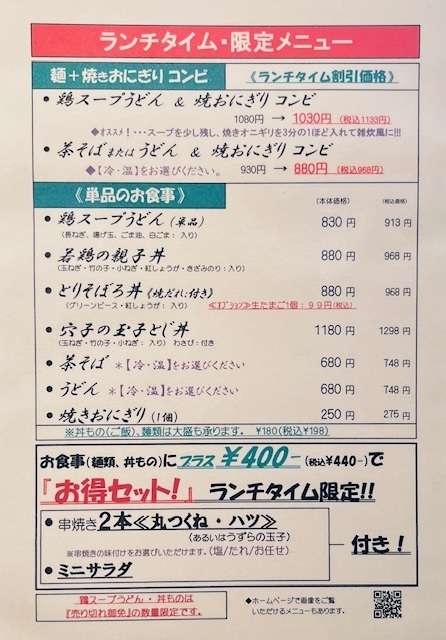 ランチタイム・限定メニュー
麺＋焼きおにぎり コンビ 《ランチタイム割引価格》
● 鶏スープうどん ＆ 焼おにぎり コンビ
1080円 → 1030円 (税込1133円)
◆オススメ！・・・スープを少し残し、焼きオニギリを3分の1ほど入れて雑炊風に!!!
● 茶そば または うどん ＆ 焼おにぎり コンビ
◆【冷・温】をお選びください。 930円 → 880円 (税込968円)
《単品のお食事》 (本体価格) (税込価格)
● 鶏スープうどん (単品) 830 円 913 円
(長ねぎ、揚げ玉、ごま油、白ごま： 入り)
● 若鶏の親子丼 880 円 968 円
(玉ねぎ・竹の子・小ねぎ・紅しょうが・きざみのり：入り)
● とりそぼろ丼 《焼だれ：付き》 880 円 968 円
(グリーンピース・紅しょうが： 入り) ≪オプション≫生たまご1個：９９円(税込)
● 穴子の玉子とじ丼 1180 円 1298 円
(玉ねぎ・竹の子・小ねぎ： 入り) わさび：付き
● 茶そば ＊【冷・温】をお選びください 680 円 748 円
● うどん ＊【冷・温】をお選びください 680 円 748 円
● 焼きおにぎり (1個) 250 円 275 円
※丼もの(ご飯)、麺類は大盛も承ります。 ¥180(税込¥198)
お食事(麺類、丼もの)に プラス ¥400- (税込¥440-)で
『お得セット！』 ランチタイム限定!!
● 串焼き2本≪丸つくね・ハツ≫
(あるいはうずらの玉子)
※串焼きの味付けをお選びいただけます。(塩/たれ/お任せ)
● ミニサラダ
付き！
鶏スープうどん・丼ものは
『売り切れ御免』の数量限定です。
◆ホームページで画像をご覧
いただけるメニューもあります。